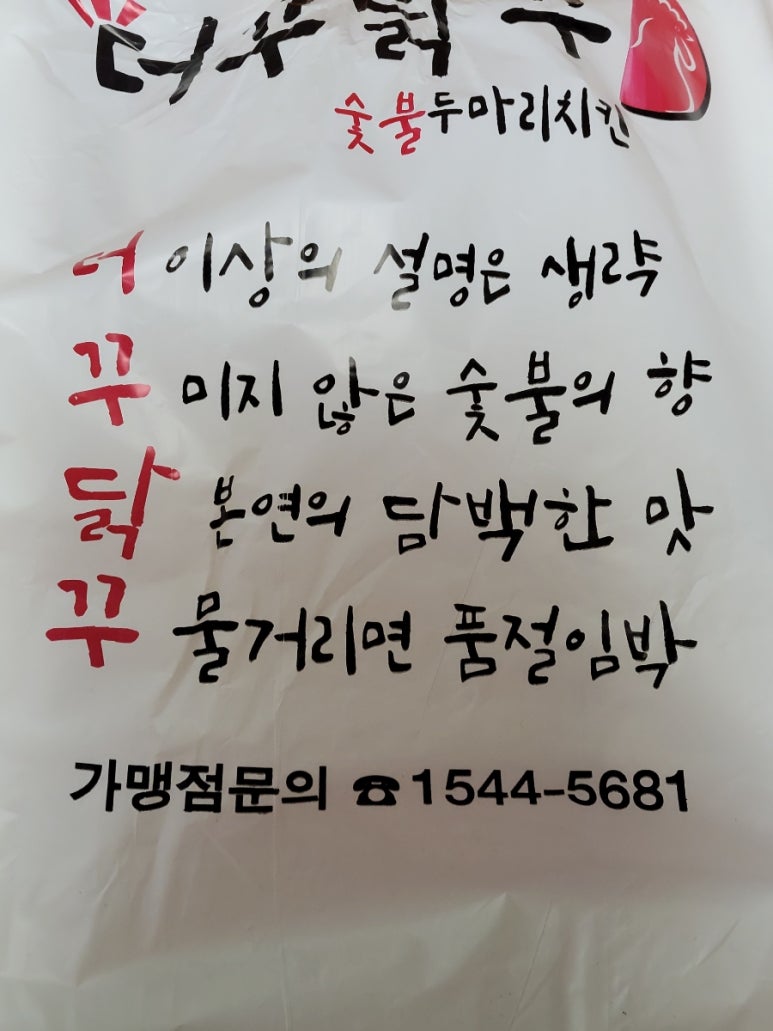 더꾸닭꾸
숯불두마리치킨
더 이상의 설명은 생략
꾸 미지 않은 숯불의 향
닭 본연의 담백한 맛
꾸 물거리면 품절임박
가맹점문의 ☎1544-5681